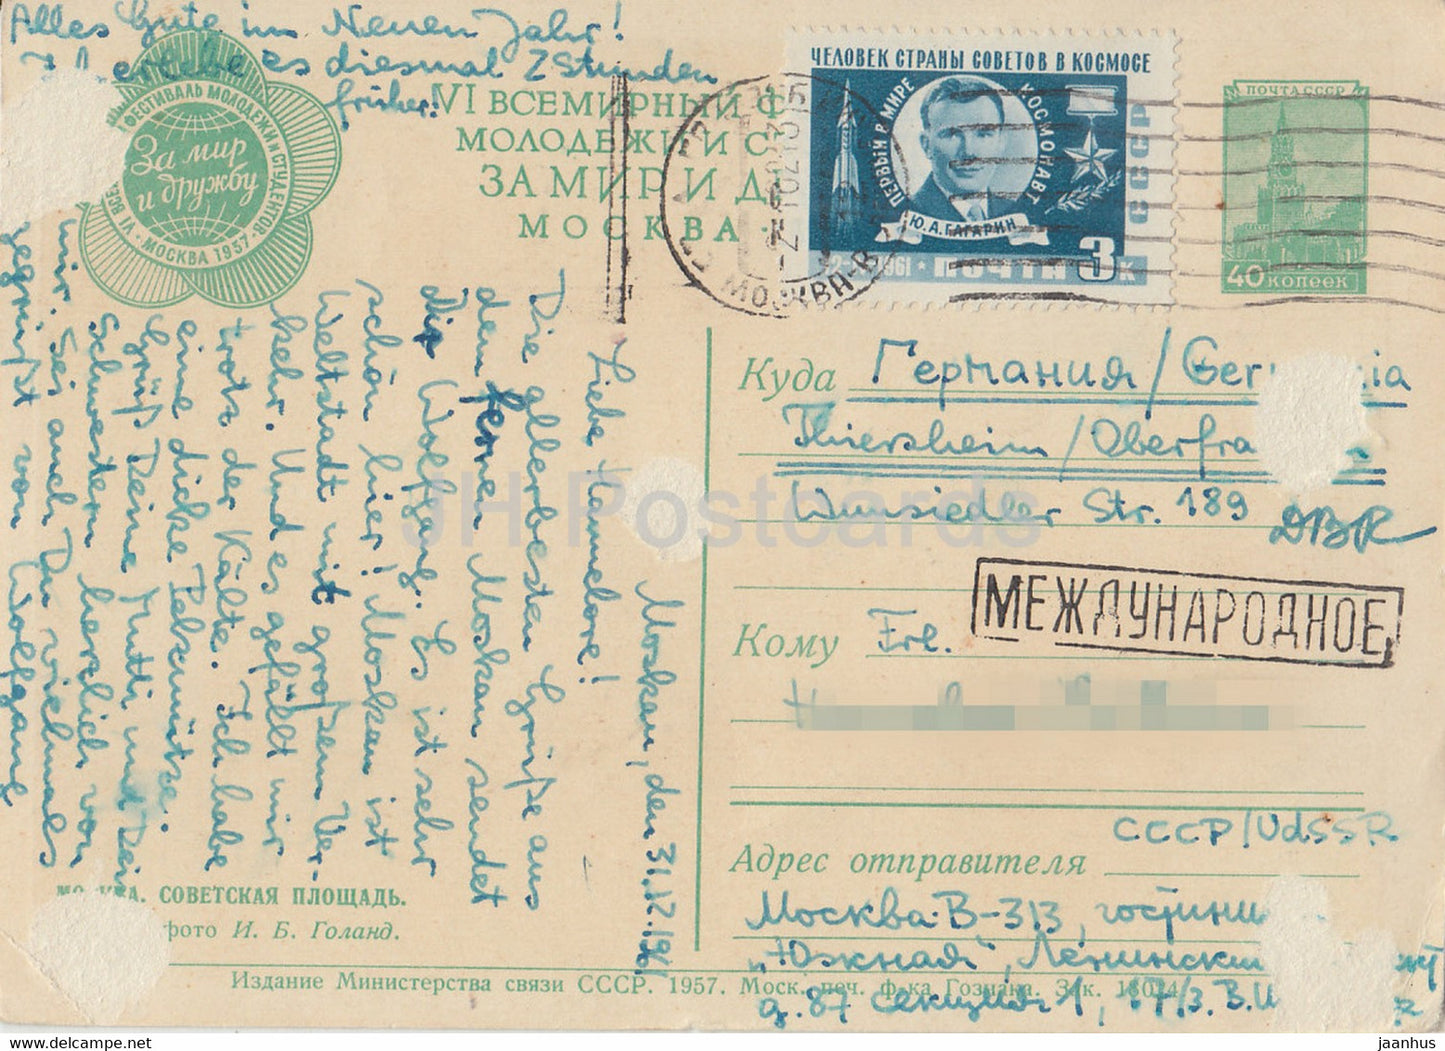 Alles Gute im Neuen Jahr!
es diesmal 2 Stunden
früher!
VI ВСЕМИРНЫЙ Ф
МОЛОДЕЖИ И С
ЗА МИР И Д
МОСКВА
ФЕСТИВАЛЬ МОЛОДЕЖИ И СТУДЕНТОВ
За мир
и дружбу
VI ВСЕ
МОСКВА 1957
ЧЕЛОВЕК СТРАНЫ СОВЕТОВ В КОСМОСЕ
ПЕРВЫЙ В МИРЕ
КОСМОНАВТ
Ю.А.ГАГАРИН
СССР
1961 ПОЧТА 3 к
МОСКВА-В
ПОЧТА СССР
40 копеек
Moskau, den 31.12.1961
Liebe Hannelore!
Die allerbesten Grüße aus
dem fernen Moskau sendet
Dir Wolfgang. Es ist sehr
schön hier! Moskau ist
Weltstadt mit großem Ver-
kehr. Und es gefällt mir
trotz der Kälte. Ich habe
eine dicke Pelzmütze.
Grüß Deine Mutti und Dei
Schwestern herzlich von
mir. Sei auch Du vielmals
gegrüßt von Wolfgang
Куда Германия/Ger nia
Thiersheim/Oberfra
Wunsiedler Str. 189
DBR
МЕЖДУНАРОДНОЕ
Кому Frl.
СССР/UdSSR
Адрес отправителя
Москва-В-313, гостини
"Южная", Ленинский
д. 87 секция 1, 17/3.
МОСКВА. СОВЕТСКАЯ ПЛОЩАДЬ.
фото И. Б. Голанд.
Издание Министерства связи СССР. 1957. Моск. печ. ф-ка Гознака. Зак. 18024
JH Postcards
jaanhus
www.delcampe.net